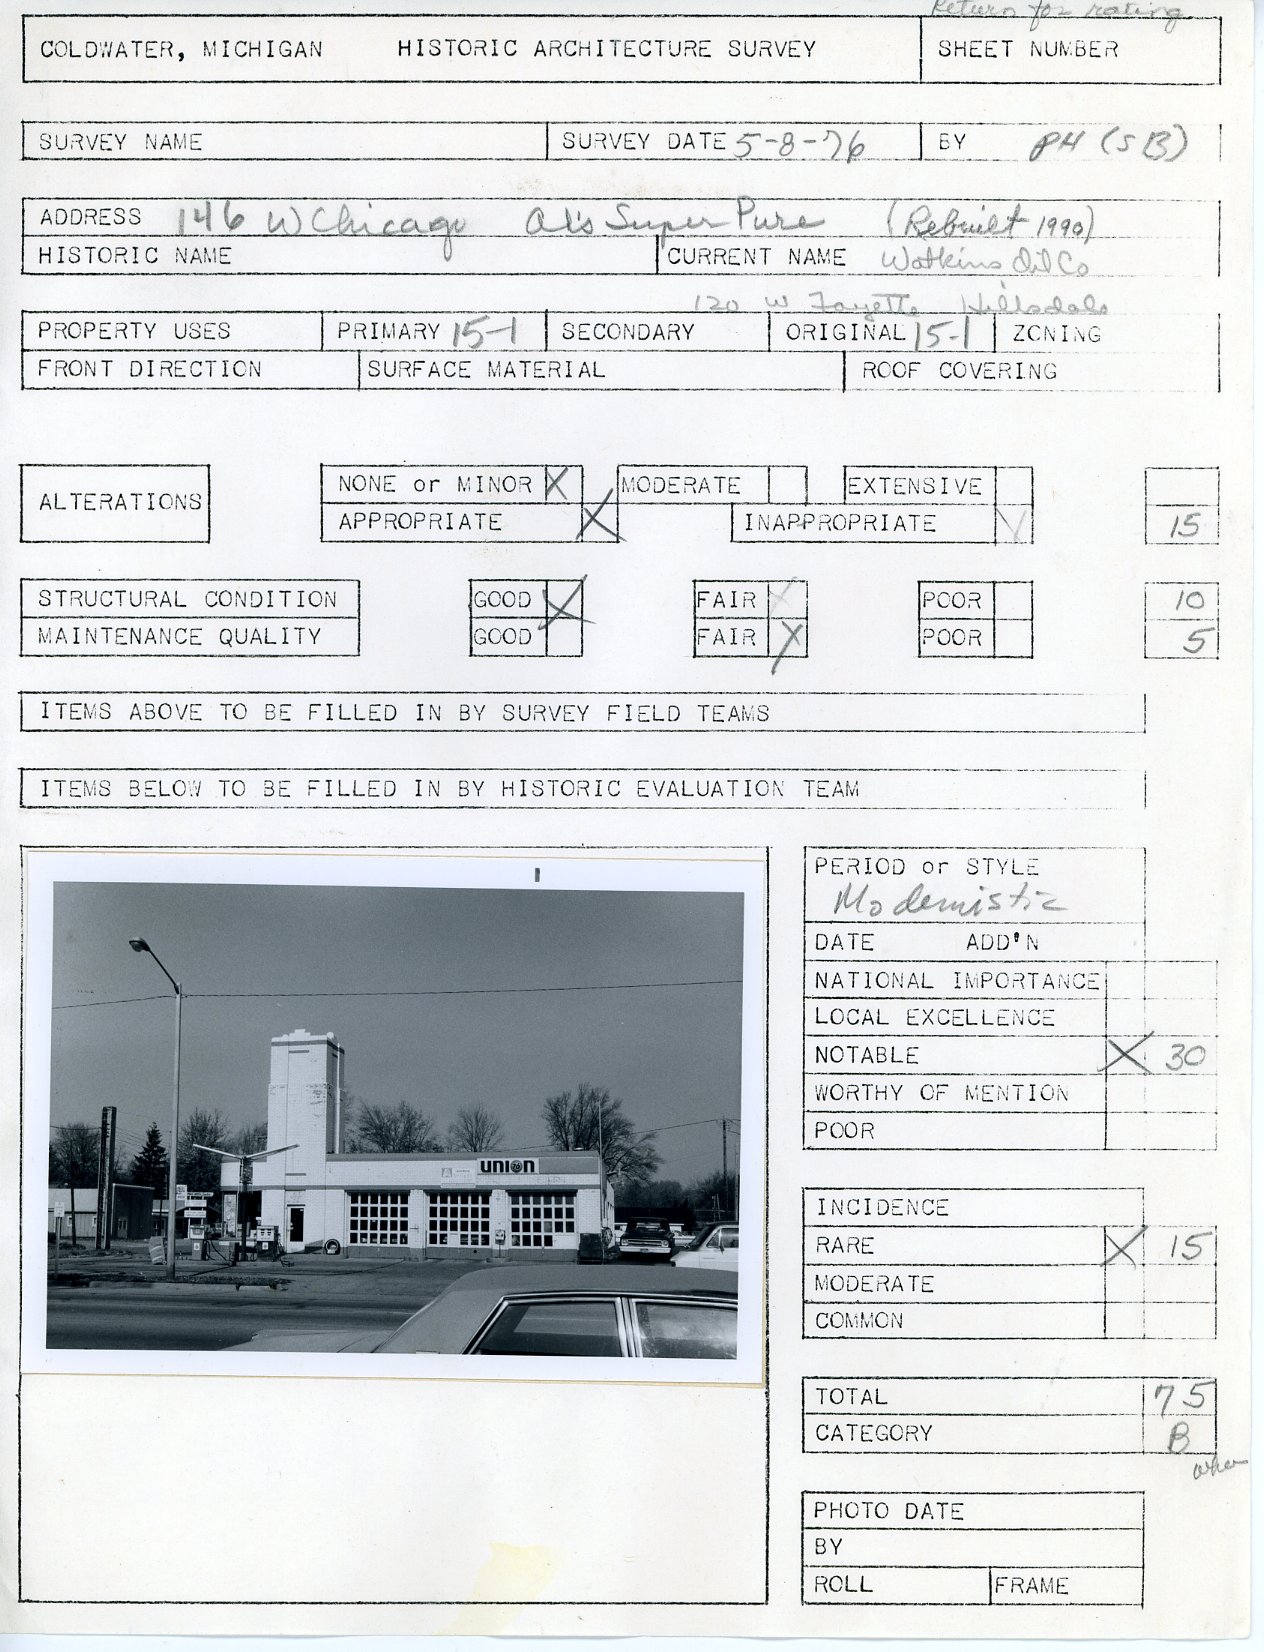 Return for rating
COLDWATER, MICHIGAN HISTORIC ARCHITECTURE SURVEY SHEET NUMBER
SURVEY NAME SURVEY DATE 5-8-76 BY PH (SB)
ADDRESS 146 W Chicago Al's Super Pure (Rebuilt 1990)
HISTORIC NAME CURRENT NAME Watkins Oil Co
120 W Fayette Hillsdale
PROPERTY USES PRIMARY 15-1 SECONDARY ORIGINAL 15-1 ZONING
FRONT DIRECTION SURFACE MATERIAL ROOF COVERING
ALTERATIONS
NONE or MINOR X MODERATE EXTENSIVE
APPROPRIATE X INAPPROPRIATE 15
STRUCTURAL CONDITION GOOD X FAIR POOR 10
MAINTENANCE QUALITY GOOD FAIR X POOR 5
ITEMS ABOVE TO BE FILLED IN BY SURVEY FIELD TEAMS
ITEMS BELOW TO BE FILLED IN BY HISTORIC EVALUATION TEAM
UNION
PERIOD or STYLE
Modernistic
DATE ADD'N
NATIONAL IMPORTANCE
LOCAL EXCELLENCE
NOTABLE X 30
WORTHY OF MENTION
POOR
INCIDENCE
RARE X 15
MODERATE
COMMON
TOTAL 75
CATEGORY B
PHOTO DATE
BY
ROLL FRAME